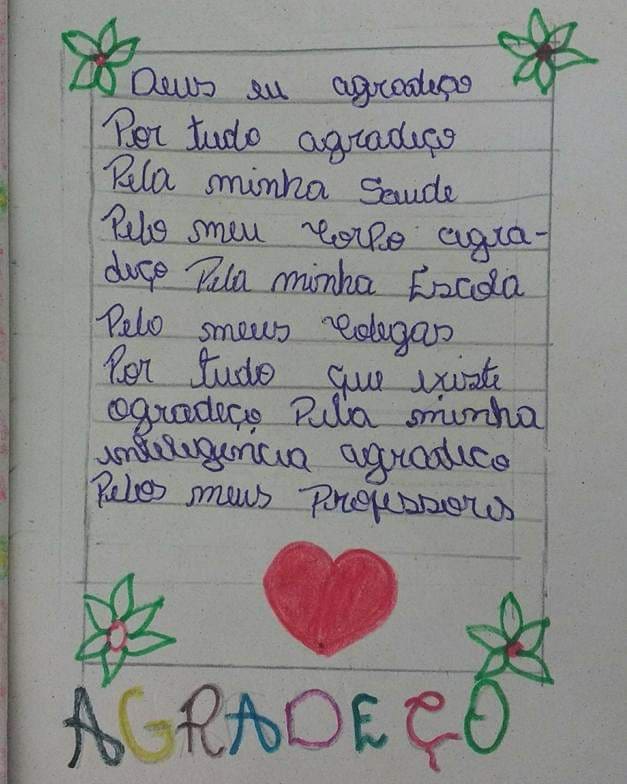 Deus eu agradeço
Por tudo agradeço
Pela minha Saude
Pelo meu corpo agra-
deço Pela minha Escola
Pelo meus colegas
Por tudo que existe
agradeço Pela minha
inteligencia agradeco
Pelos meus Professores
AGRADEÇO